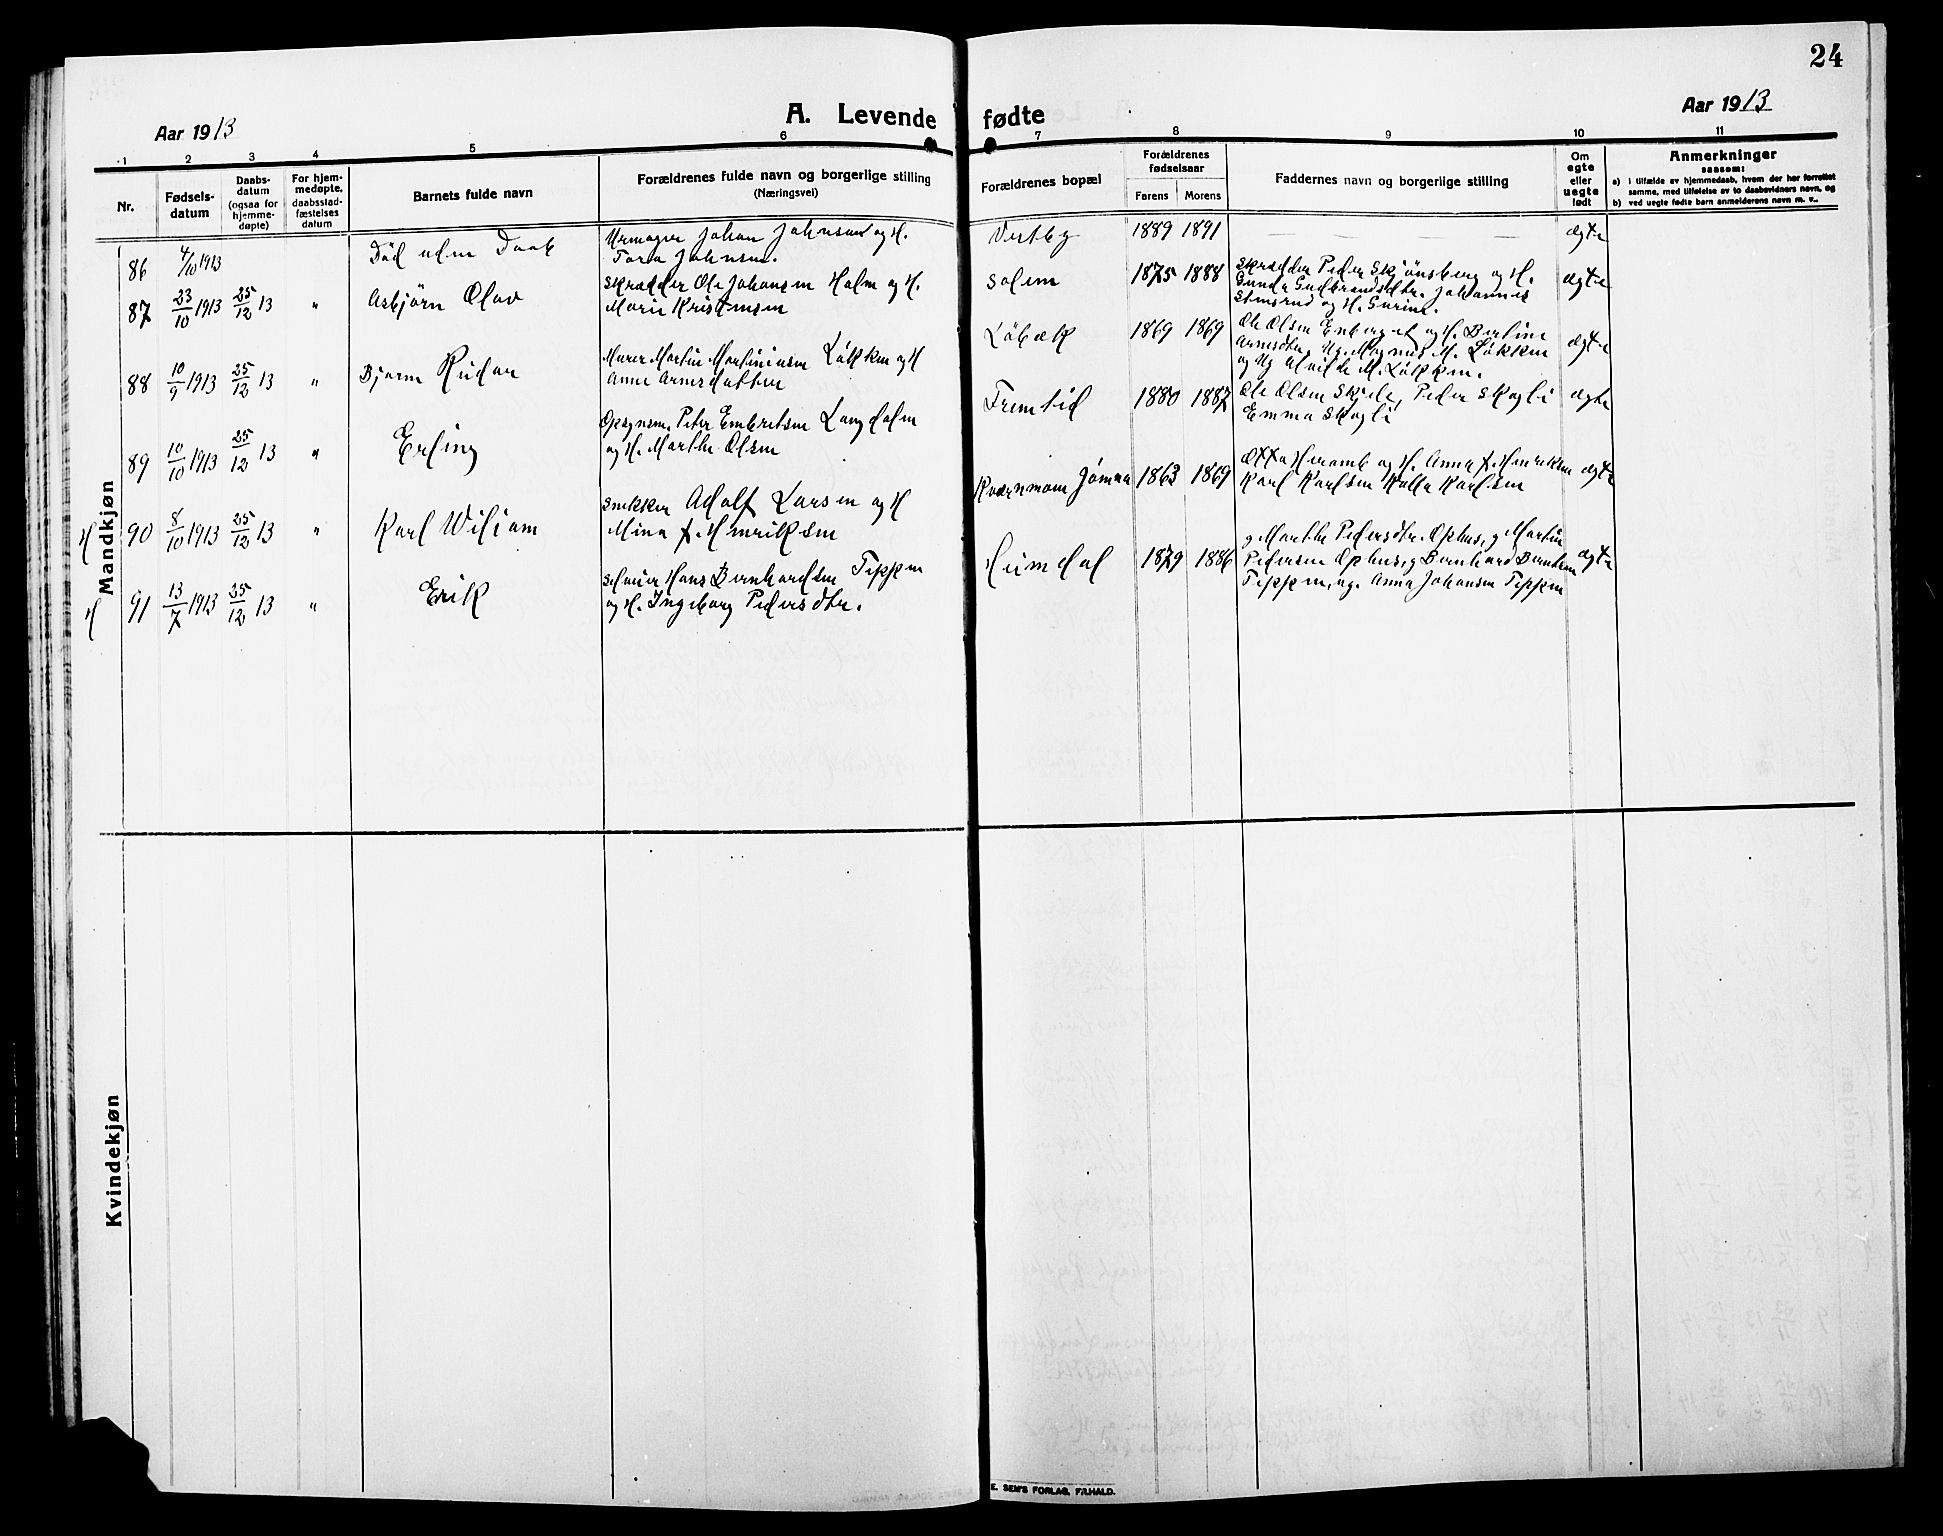 24
Aar 1913
A. Levende fødte
Aar 1913
1 2 3 4 5 6 7 8 9 10 11
Nr.
Fødsels-
datum
Daabs-
datum
(ogsaa for
hjemme-
døpte)
For hjem-
medøpte,
daabsstad-
fæstelses
datum
Barnets fulde navn
Forældrenes fulde navn og borgerlige stilling
(Næringsvei)
Forældrenes bopæl
Forældrenes
fødselsaar
Farens Morens
Faddernes navn og borgerlige stilling
Om
egte
eller
uegte
født
Anmerkninger
saasom:
a) i tilfælde av hjemmedaab, hvem der har forrettet
samme, med tilføielse av to daabsvidners navn, og
b) ved uegte fødte barn anmelderens navn m. v..
Mandkjøn
86 4/10 1913 Død uden Daab
Urmager Johan Johnsen og H.
Tora Johnsen.
Vestby 1889 1891 — — — — ægte
87 23/10 1913 25/12 13 " Asbjörn Olav
Skrædder Ole Johansen Holm og H.
Marie Kristensen
Solem 1875 1888
Skrædder Peder Skjönsberg og H.
Gunda Gudbrandsdtr. Johannes
Stensrud og H. Gurine.
ægte
88 10/9 1913 25/12 13 " Bjarne Reidar
Murer Martin Martiniusen Løkken og H
Anne Arnesdatter
Löbæk 1869 1869
Ole Olsen Enberget og H. Bertine
Arnesdtr. Ug. Magnus M. Løkken
og Ug Alvilde M. Løkken.
ægte
89 10/10 1913 25/12 13 " Erling
Opsynsm. Peter Embretsen Langholm
og H. Marthe Olsen
Fremtid 1880 1887
Ole Olsen Skjele, Peder Skogli
Emma Skogli
ægte
H 90 8/10 1913 25/12 13 " Karl Wiliam
Snekker Adolf Larsen og H
Mina f. Henriksen
Kværnmoen Jømna 1863 1869
Otto Heramb og H. Anna f. Henriksen
Karl Karlsen Kalla Karlsen
ægte
H 91 13/7 1913 25/12 13 " Erik
Hans Bernhardsen Tippen
og H. Ingeborg Pedersdtr.
Heimdal 1879 1886
g Marthe Pedersdtr. Ophus, g Martin
Pedersen Ophus, g Bernhard Berntsen
Tippen, ug. Anna Johansen Tippen
ægte
Kvindekjøn
E. SEM'S FORLAG, F.HALD.